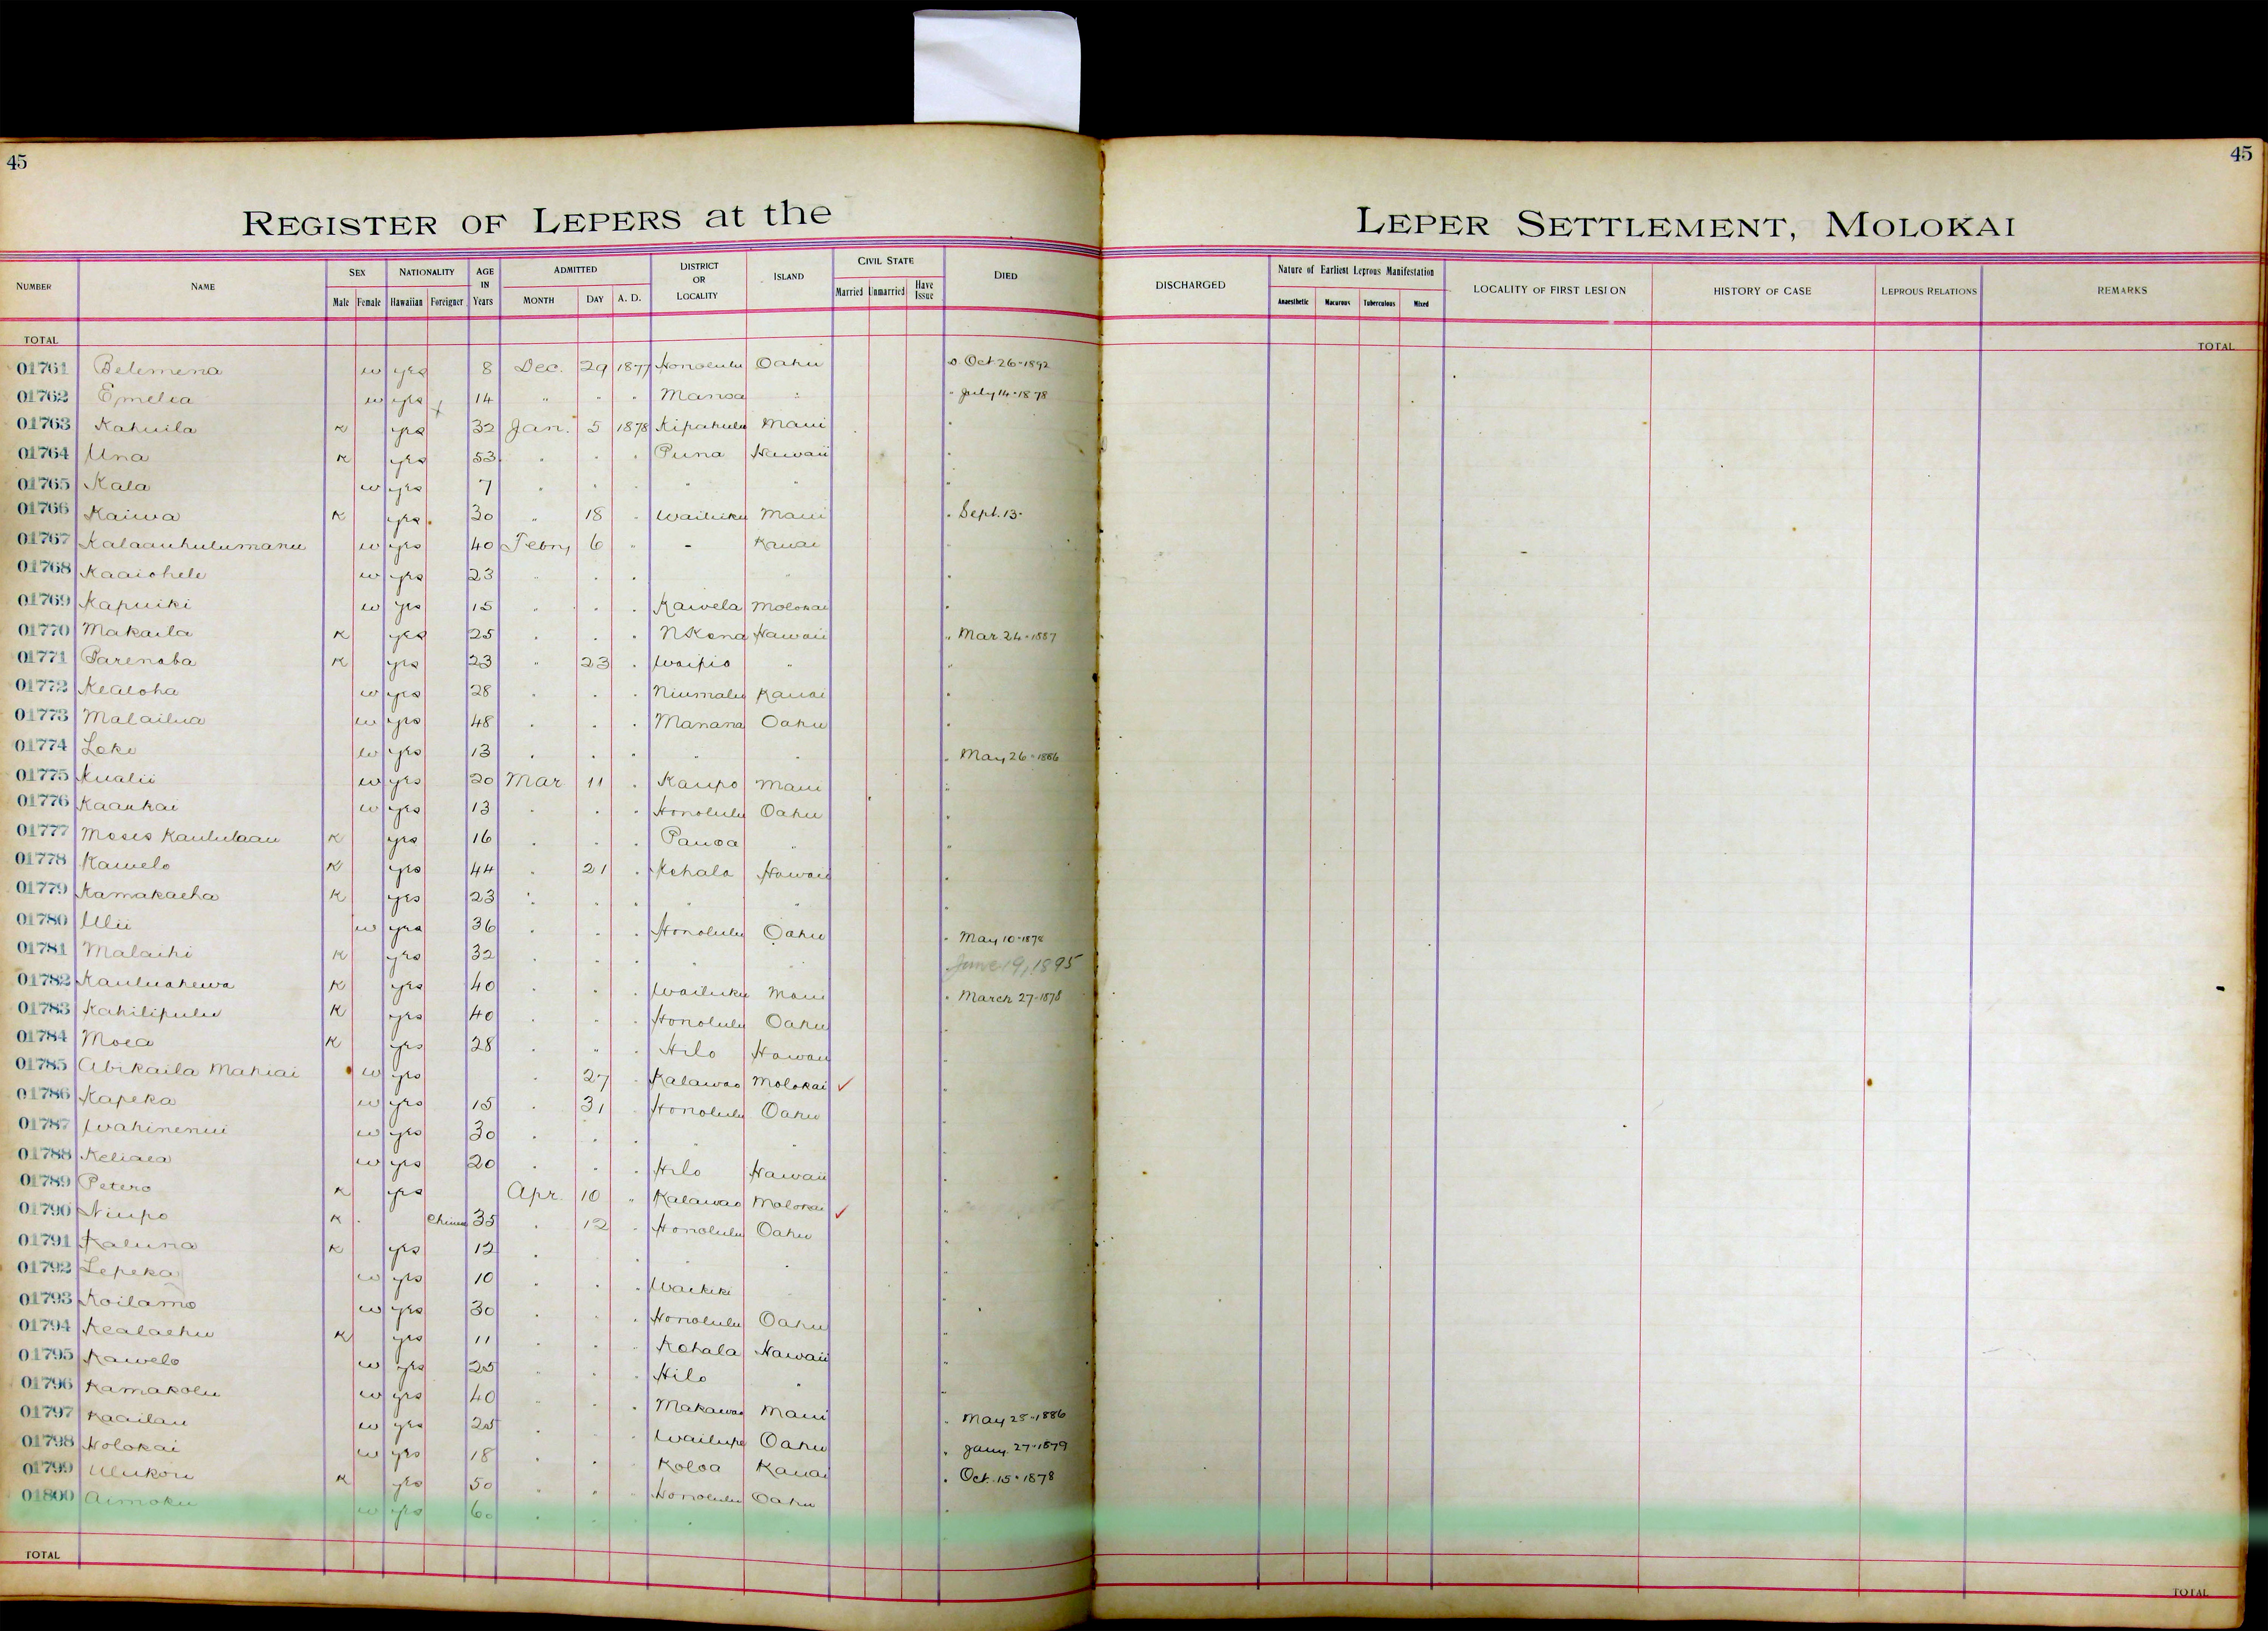 45
45
REGISTER OF LEPERS at the LEPER SETTLEMENT, MOLOKAI
NUMBER NAME SEX Male Female NATIONALITY Hawaiian Foreigner AGE IN Years ADMITTED MONTH DAY A. D. DISTRICT OR LOCALITY ISLAND CIVIL STATE Married Unmarried Have Issue DIED DISCHARGED Nature of Earliest Leprous Manifestation Anaesthetic Macurous Tuberculous Mixed LOCALITY OF FIRST LESION HISTORY OF CASE LEPROUS RELATIONS REMARKS
TOTAL TOTAL
01761 Belemena w yes 8 Dec. 29 1877 Honolulu Oahu Oct 26-1892
01762 Emelia w yes 14 " " " Manoa " " July 14-1878
01763 Kahuila K yes 32 Jan. 5 1878 Kipahulu Maui
01764 Una K yes 53 " " " Puna Hawaii
01765 Kala w yes 7 " " " " "
01766 Kaiwa K yes 30 " 18 " Wailuku Maui " Sept. 13-
01767 Kalaauhulumanu w yes 40 Febry 6 " - Kauai
01768 Kaaiohele w yes 23 " " " "
01769 Kapuiki w yes 15 " " " Kawela Molokai
01770 Makaila K yes 25 " " " N Kona Hawaii " Mar 24-1887
01771 Parenaba K yes 23 " 23 " Waipio "
01772 Kealoha w yes 28 " " " Niumalu Kauai
01773 Malailua w yes 48 " " " Manana Oahu
01774 Loke w yes 13 " " " " " " May 26-1886
01775 Kualii w yes 20 Mar 11 " Kaupo Maui
01776 Kaaukai w yes 13 " " " Honolulu Oahu
01777 Moses Kaululaau K yes 16 " " " Pauoa "
01778 Kawelo K yes 44 " 21 " Kohala Hawaii
01779 Kamakaeha K yes 23 " " " " "
01780 Ulii w yes 36 " " " Honolulu Oahu " May 10-1878
01781 Malaihi K yes 32 " " " " " June 19, 1895
01782 Kauluahewa K yes 40 " " " Wailuku Maui " March 27-1878
01783 Kahilipulu K yes 40 " " " Honolulu Oahu
01784 Moea K yes 28 " " " Hilo Hawaii
01785 Abikaila Mahiai w yes " 27 " Kalawao Molokai ✓
01786 Kapeka w yes 15 " 31 " Honolulu Oahu
01787 Wahinenui w yes 30 " " " " "
01788 Keliaea w yes 20 " " " Hilo Hawaii
01789 Petero K yes Apr. 10 " Kalawao Molokai ✓
01790 Niupo K Chinese 35 " 12 " Honolulu Oahu
01791 Kaluna K yes 12 " " " " "
01792 Lepeka w yes 10 " " " Waikiki
01793 Koilamo w yes 30 " " " Honolulu Oahu
01794 Kealaehu K yes 11 " " " Kohala Hawaii
01795 Kawelo w yes 25 " " " Hilo "
01796 Kamakolu w yes 40 " " " Makawao Maui
01797 Kaailau w yes 25 " " " Wailupe Oahu " May 25-1886
01798 Holokai w yes 18 " " " Koloa Kauai " Jany. 27-1879
01799 Ulukou K yes 50 " " " Honolulu Oahu " Oct. 15-1878
01800 Aimoku w yes 60 " " "
TOTAL TOTAL